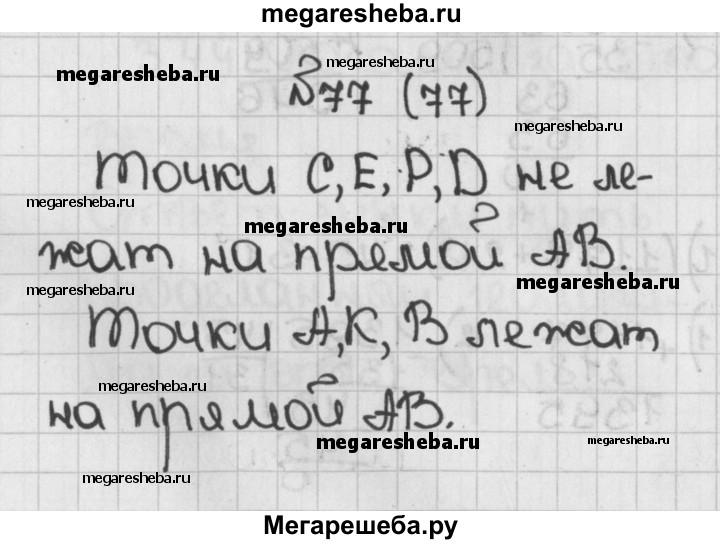 megaresheba.ru
megaresheba.ru
megaresheba.ru
№77 (77)
megaresheba.ru
Точки C, E, P, D не ле-
megaresheba.ru
megaresheba.ru
жат на прямой AB.
megaresheba.ru
megaresheba.ru
Точки A, K, B лежат
megaresheba.ru
на прямой AB.
megaresheba.ru
megaresheba.ru
megaresheba.ru
Мегарешеба.ру